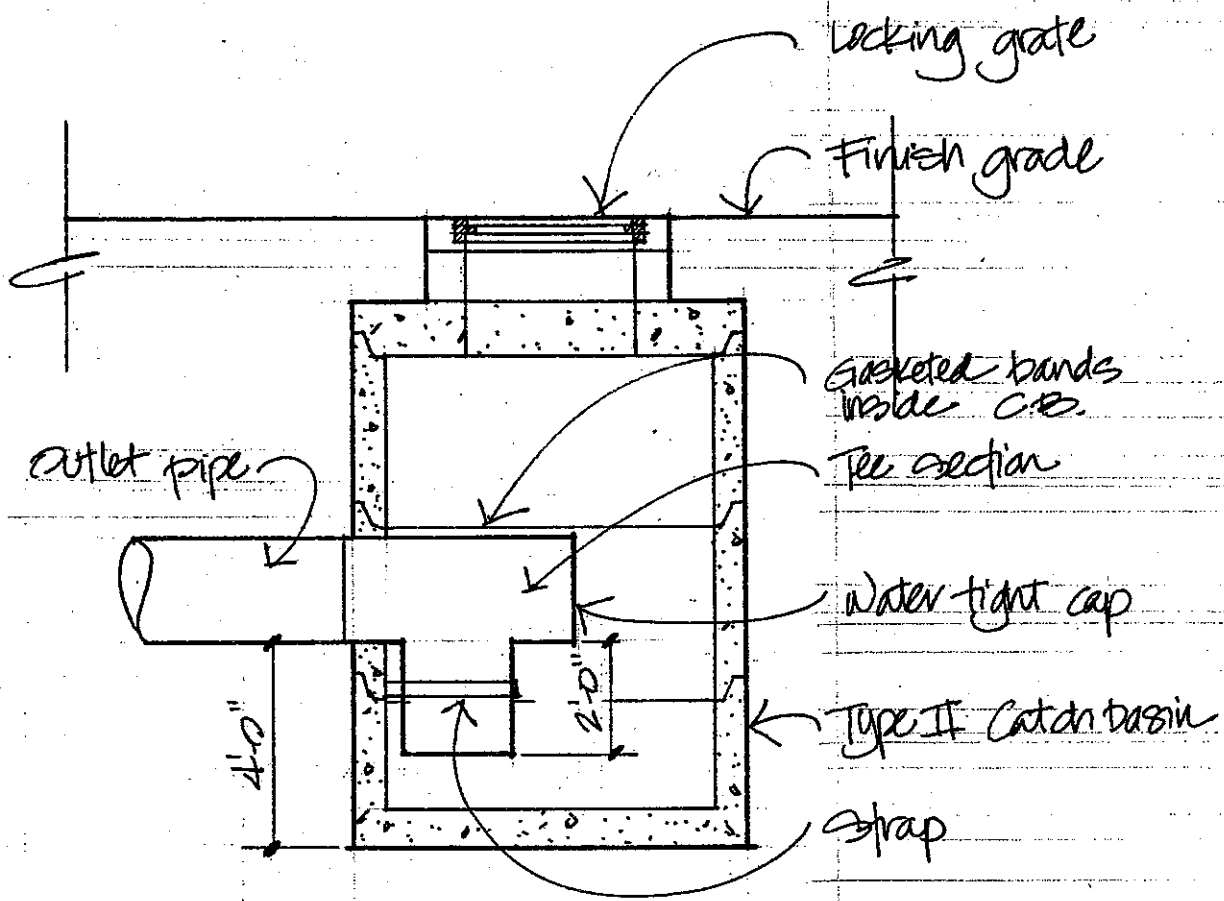 Locking grate
Finish grade
Gasketed bands
inside C.B.
outlet pipe
Tee section
Water tight cap
2'-0"
4'-0"
Type II Catch basin
strap